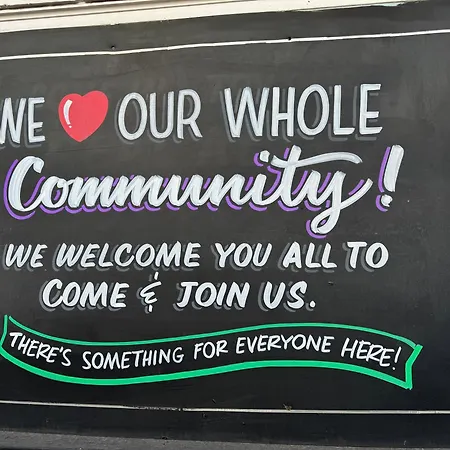 WE ❤ OUR WHOLE
Community!
WE WELCOME YOU ALL TO
COME & JOIN US.
THERE'S SOMETHING FOR EVERYONE HERE!